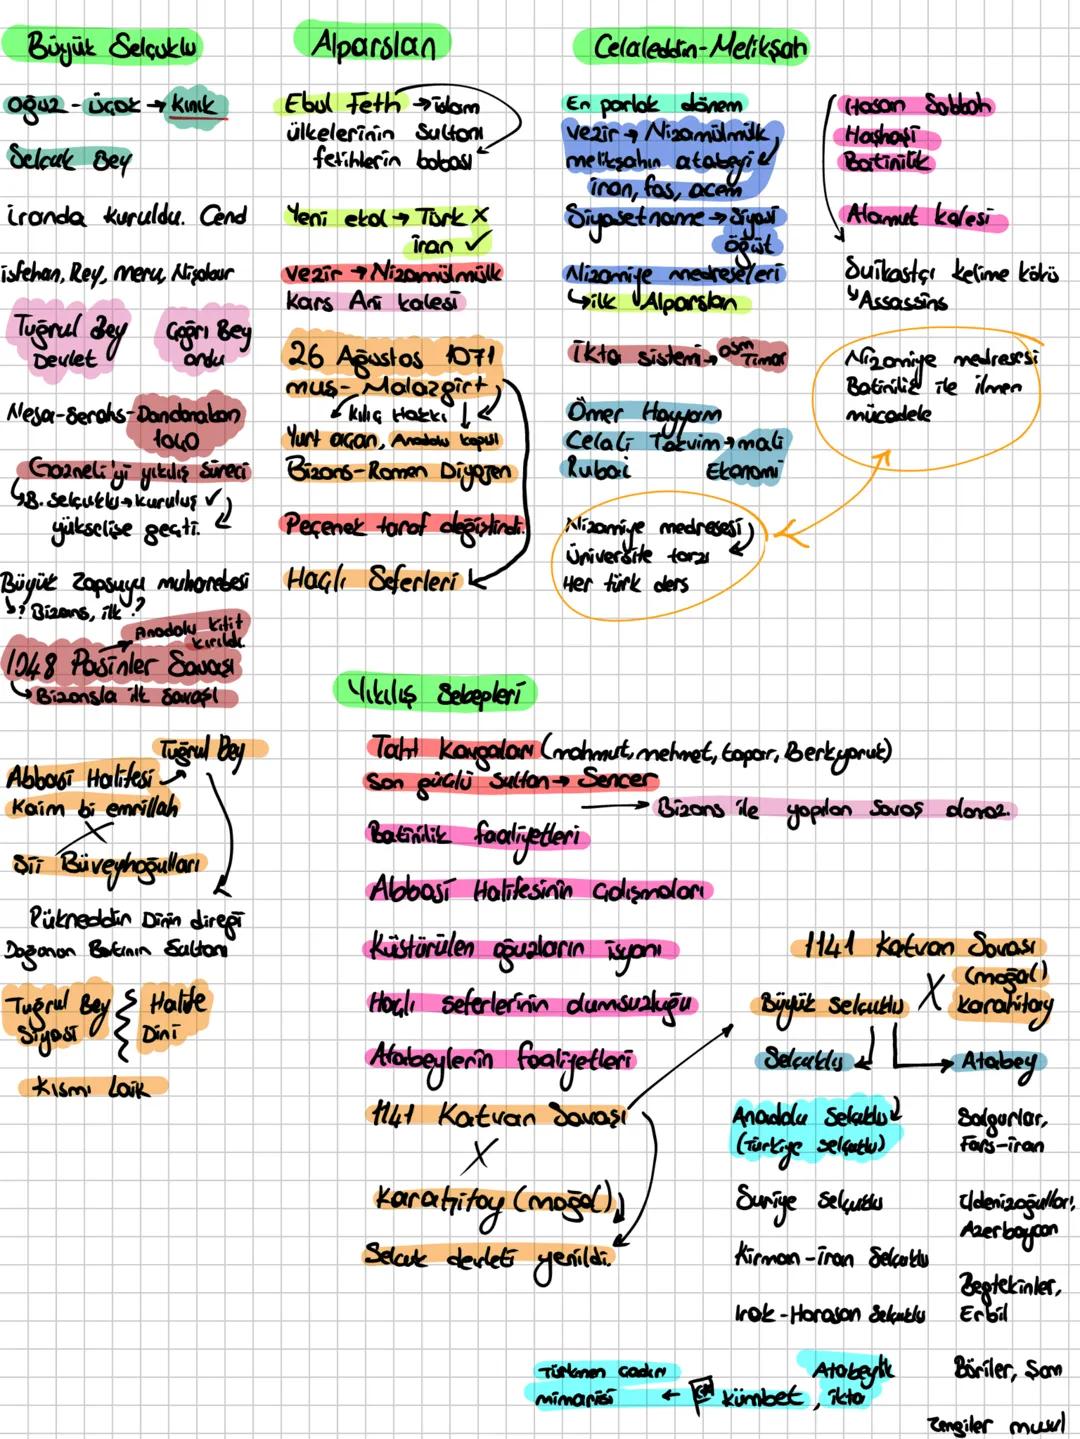 Büyük Selçuklu
Oğuz - üçok → kınık
Selçuk Bey
iranda kuruldu. Cend
isfehan, Rey, merv, Nişabur
Tuğrul Bey
Devlet
Çağrı Bey
ordu
Nesa-Serahs-Dandanakan
1040
Gazneli'yi yıkılış süreci
B. Selçuklu → kuruluş ✓
yükselişe geçti.
Büyük Zapsuyu muharebesi
? Bizans, ilk ?
Anadolu kilit
kırıldı.
1048 Pasinler Savaşı
Bizansla ilk savaş!
Tuğrul Bey
Abbasi Halifesi
Kaim bi emrillah
X
Şii Büveyhoğulları
Rükneddin Dinin direği
Doğunun Batının Sultanı
Tuğrul Bey
Siyasi
Halife
Dini
Kısmı Laik
Alparslan
Ebul Feth → islam
ülkelerinin Sultanı
fetihlerin babası
Yeni ekol → Türk X
iran ✓
vezir → Nizamülmülk
Kars Ani kalesi
26 Ağustos 1071
muş - Malazgirt
kılıç Hakkı
Yurt açan, Anadolu kapısı
Bizans-Romen Diyojen
Peçenek taraf değiştirdi.
Haçlı Seferleri
Celaleddin-Melikşah
En parlak dönem
vezir → Nizamülmülk
melikşahın atabeyi
iran, fas, acem
Siyasetname → Siyasi
öğüt
Nizamiye medreseleri
ilk Alparslan
ikta sistem → osm
Timar
Ömer Hayyam
Celali Takvim → mali
Rubai Ekonomi
Nizamiye medresesi
Üniversite tarzı
Her türk ders
Hasan Sabbah
Haşhaşi
Batinilik
Alamut kalesi
Suikastçı kelime kökü
Assassins
Nizamiye medresesi
Batinilik ile ilmen
mücadele
Yıkılış Sebepleri
Taht kavgaları (mahmut, mehmet, tapar, Berkyaruk)
Son güçlü Sultan → Sencer
→ Bizans ile yapılan savaş
Batinilik faaliyetleri
Abbasi Halifesinin çalışmaları
Küstürülen oğuzların isyanı
Haçlı seferlerinin
Atabeylerin faaliyetleri
1141 Katvan Savaşı
X
Karahitay (moğol)
Selçuk devleti yenildi.
1141 Katvan Savaşı
(moğol)
Büyük selçuklu X karahitay
Selçuklu
Atabey
Anadolu Selçuklu
(Türkiye selçuklu)
Suriye selçuklu
Kirman-iran Selçuklu
Irak-Horasan Selçuklu
Salgurlar,
Fars-iran
ildenizoğulları,
Azerbaycan
Begtekinler,
Erbil
Böriler, Şam
Zengiler musul
Türkmen çadırı
mimarisi ← kümbet,
Atabeylik
ikta